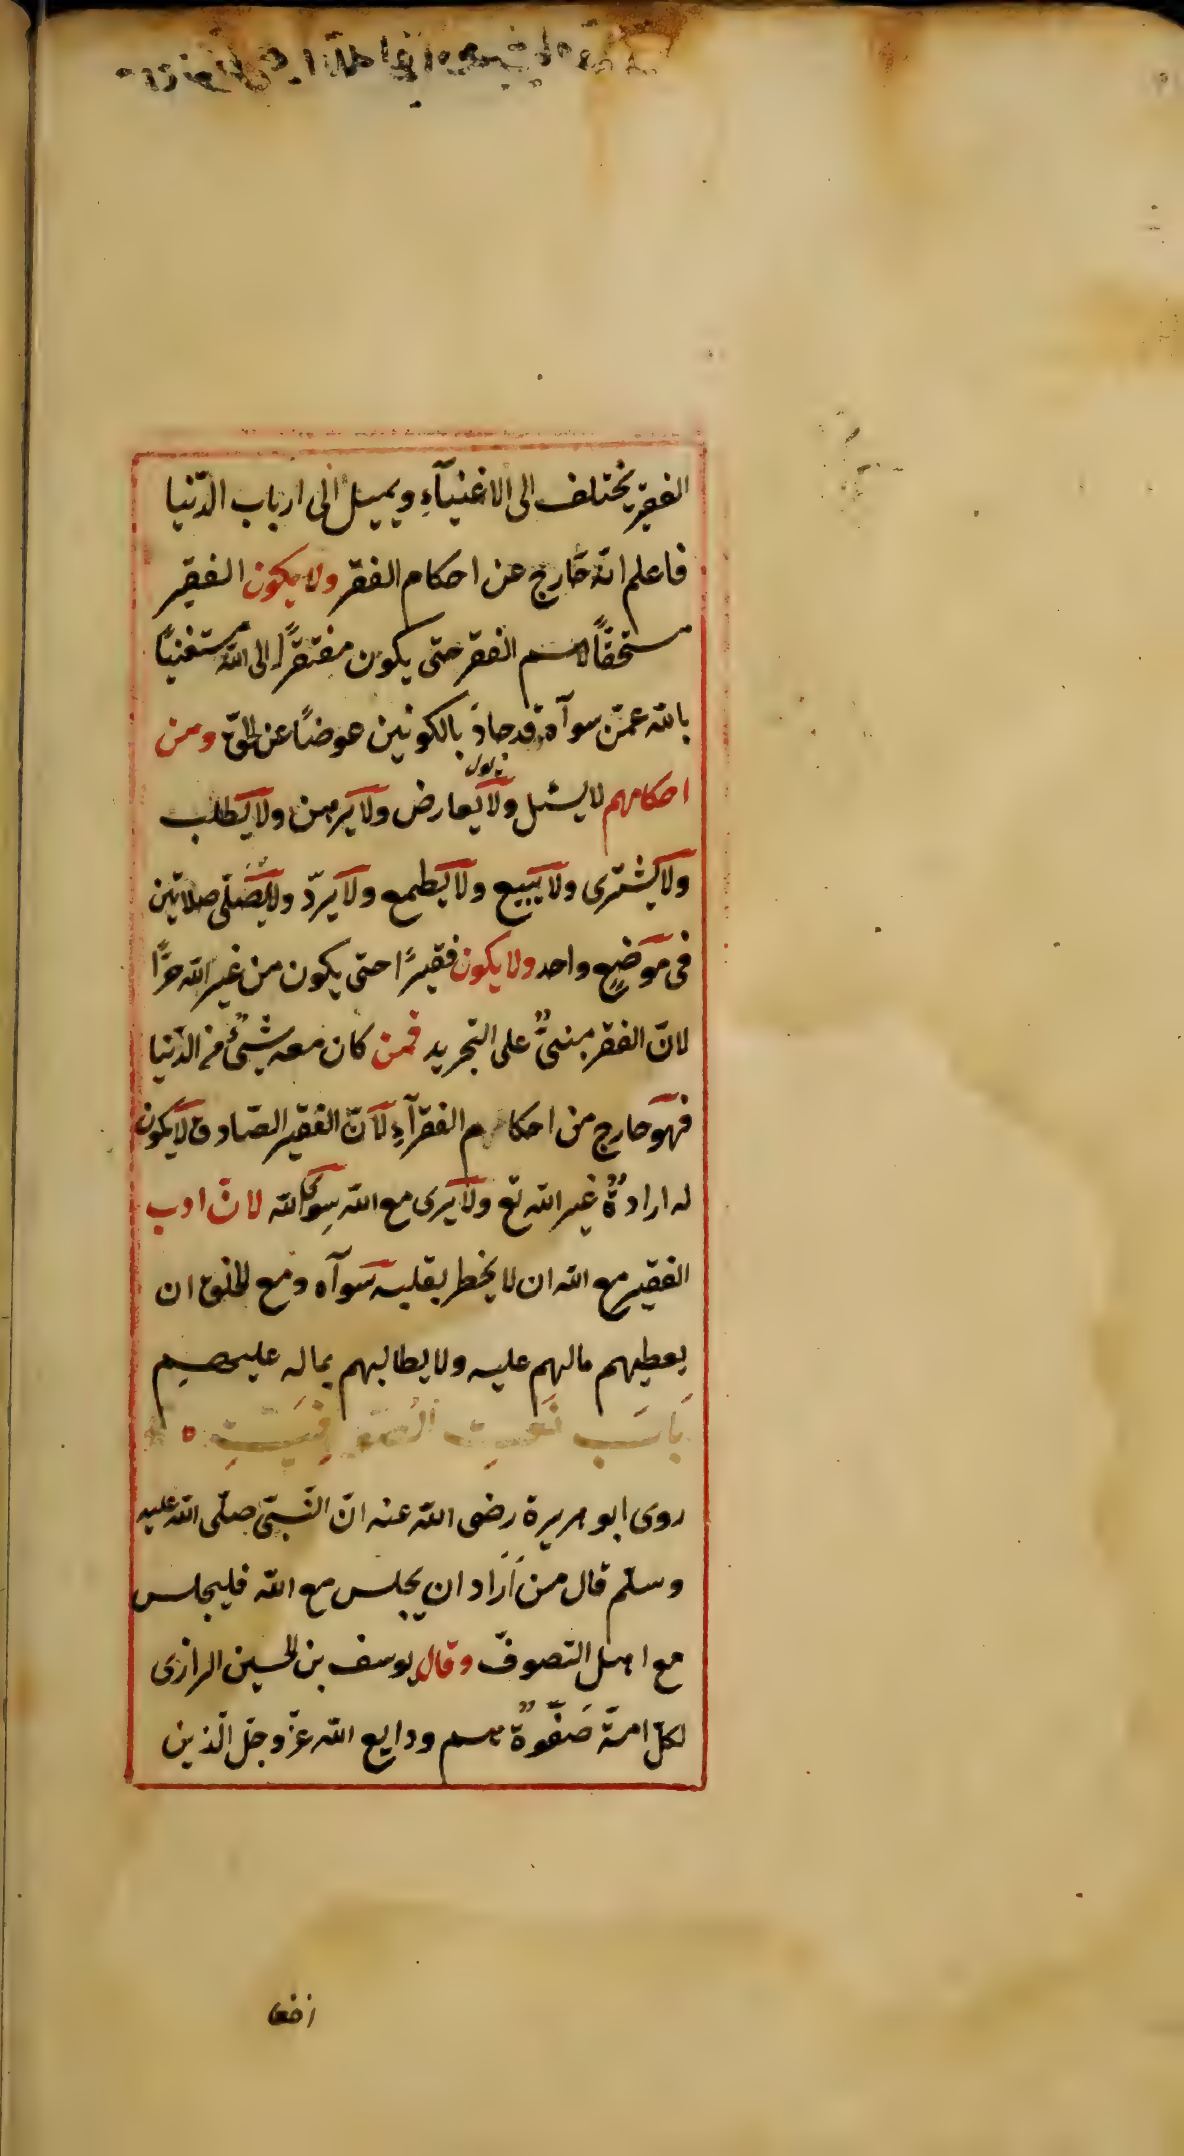 الفقير يختلف الى الاغنيآءِ ويميل الى ارباب الدّنيا
فاعلم انّه خارج عن احكام الفقر ولا يكون الفقير
مستحقًّا لاسم الفقر حتى يكون مفتقرًا الى الله مستغنيًا
بالله عمّن سوآه قد جادَ بالكونين عوضًا عن الحقّ ومن
احكامهم لا يسئل ولا يعارض ولا يرهن ولا يطلب
ولا يشترى ولا يبيع ولا يطمع ولا يردّ ولا يصلّى صلاتين
فى موضعٍ واحد ولا يكون فقيرًا حتى يكون من غير الله حرًّا
لانّ الفقر مبنىٌّ على التجريد فمن كان معه شئٌ من الدّنيا
فهو خارج من احكام الفقرآءِ لانّ الفقير الصّادق لا يكون
له ارادةٌ غير الله تع ولا يرى مع الله سوى الله لانّ ادب
الفقير مع الله ان لا يخطر بقلبه سوآه ومع الخلق ان
يعطيهم مالهم عليه ولا يطالبهم بماله عليهم
بَابَ نَعتِ الصّوفيّةِ
روى ابو هريرة رضى الله عنه انّ النّبىّ صلّى الله عليه
وسلّم قال من اَرَاد ان يجلس مع الله فليجلس
مع اهل التصوفّ وقال يوسف بن الحسين الرازى
لكلّ امّة صَفوةٌ هم ودايع الله عزّ وجلّ الّذين
اخفا